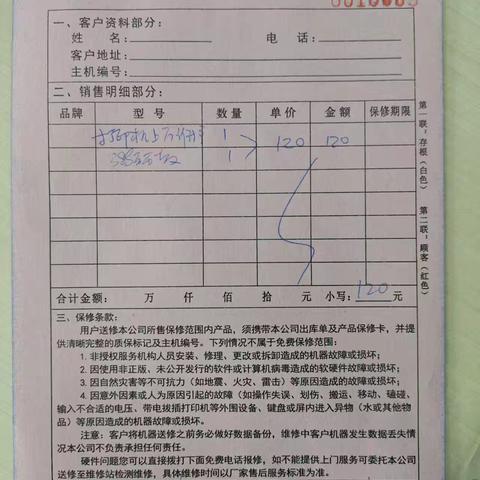 一、客户资料部分：
姓 名： 电 话：
客户地址：
主机编号：
二、销售明细部分：
品牌 型 号 数量 单价 金额 保修期限
打印机上 1 120 120
1
合计金额： 万 仟 佰 拾 元 小写：120 元
三、保修条款：
用户送修本公司所售保修范围内产品，须携带本公司出库单及产品保修卡，并提
供清晰完整的质保标记及主机编号。下列情况不属于免费保修范围：
1、非授权服务机构人员安装、修理、更改或拆卸造成的机器故障或损坏；
2、因使用非正版、未公开发行的软件或计算机病毒造成的软硬件故障或损坏；
3、因自然灾害等不可抗力（如地震、火灾、雷击）等原因造成的故障或损坏；
4、因意外因素或人为原因引起的故障（如操作失误、划伤、搬运、移动、磕碰、
输入不合适的电压、带电拔插打印机等外围设备、键盘或屏内进入异物（水或其他物
品）等原因造成的故障或损坏。
注意：客户将机器送修之前务必做好数据备份，维修中客户机器发生数据丢失情
况本公司不负责承担任何责任。
硬件问题您可以直接拨打下面免费电话报修，如不能提供上门服务可委托本公司
送修至维修站检测维修，具体维修时间以厂家售后服务标准为准。
第一联：存根（白色） 第二联：顾客（红色）